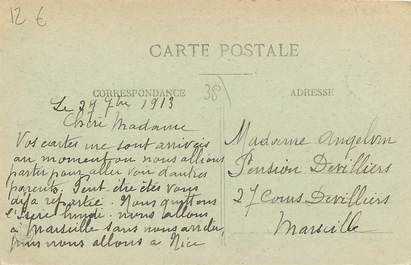 12 €
CARTE POSTALE
CORRESPONDANCE
38
ADRESSE
Le 27 7bre 1913
Chère Madame
Vos cartes me sont arrivées
au moment ou nous allions
partir pour aller voir d'autres
parents. Peut être êtes vous
déja repartie. Nous quittons
l'Isère lundi. nous allons
à Marseille sans nous arrêter,
puis nous allons a Nice
Madame Angelvin
Pension Devilliers
27 Cours Devilliers
Marseille